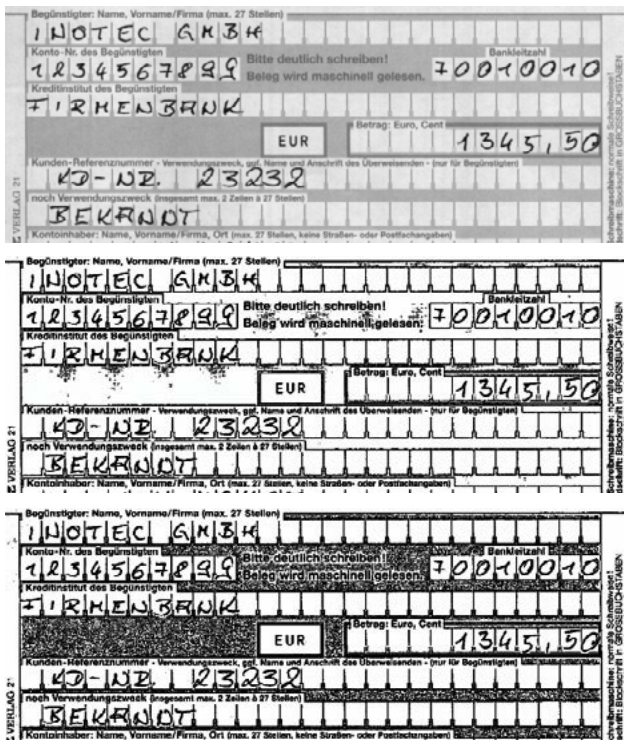 Begünstigter: Name, Vorname/Firma (max. 27 Stellen)
INOTEC GMBH
Konto-Nr. des Begünstigten
Bitte deutlich schreiben!
Bankleitzahl
1234567899
Beleg wird maschinell gelesen.
70010010
Kreditinstitut des Begünstigten
FIRMENBANK
Betrag: Euro, Cent
EUR
1345,50
Kunden-Referenznummer - Verwendungszweck, ggf. Name und Anschrift des Überweisenden - (nur für Begünstigten)
KD-NR. 23232
noch Verwendungszweck (insgesamt max. 2 Zeilen à 27 Stellen)
BEKANNT
Kontoinhaber: Name, Vorname/Firma, Ort (max. 27 Stellen, keine Straßen- oder Postfachangaben)
VERLAG 21
Schreibmaschine: normale Schreibweise!
dschrift: Blockschrift in GROSSBUCHSTABEN
Begünstigter: Name, Vorname/Firma (max. 27 Stellen)
INOTEC GMBH
Konto-Nr. des Begünstigten
Bitte deutlich schreiben!
Bankleitzahl
1234567899
Beleg wird maschinell gelesen.
70010010
Kreditinstitut des Begünstigten
FIRMENBANK
Betrag: Euro, Cent
EUR
1345,50
Kunden-Referenznummer - Verwendungszweck, ggf. Name und Anschrift des Überweisenden - (nur für Begünstigten)
KD-NR. 23232
noch Verwendungszweck (insgesamt max. 2 Zeilen à 27 Stellen)
BEKANNT
Kontoinhaber: Name, Vorname/Firma, Ort (max. 27 Stellen, keine Straßen- oder Postfachangaben)
VERLAG 21
Schreibmaschine: normale Schreibweise!
dschrift: Blockschrift in GROSSBUCHSTABEN
Begünstigter: Name, Vorname/Firma (max. 27 Stellen)
INOTEC GMBH
Konto-Nr. des Begünstigten
Bitte deutlich schreiben!
Bankleitzahl
1234567899
Beleg wird maschinell gelesen.
70010010
Kreditinstitut des Begünstigten
FIRMENBANK
Betrag: Euro, Cent
EUR
1345,50
Kunden-Referenznummer - Verwendungszweck, ggf. Name und Anschrift des Überweisenden - (nur für Begünstigten)
KD-NR. 23232
noch Verwendungszweck (insgesamt max. 2 Zeilen à 27 Stellen)
BEKANNT
Kontoinhaber: Name, Vorname/Firma, Ort (max. 27 Stellen, keine Straßen- oder Postfachangaben)
VERLAG 21
chreibmaschine: normale Schreibweise!
dschrift: Blockschrift in GROSSBUCHSTABEN